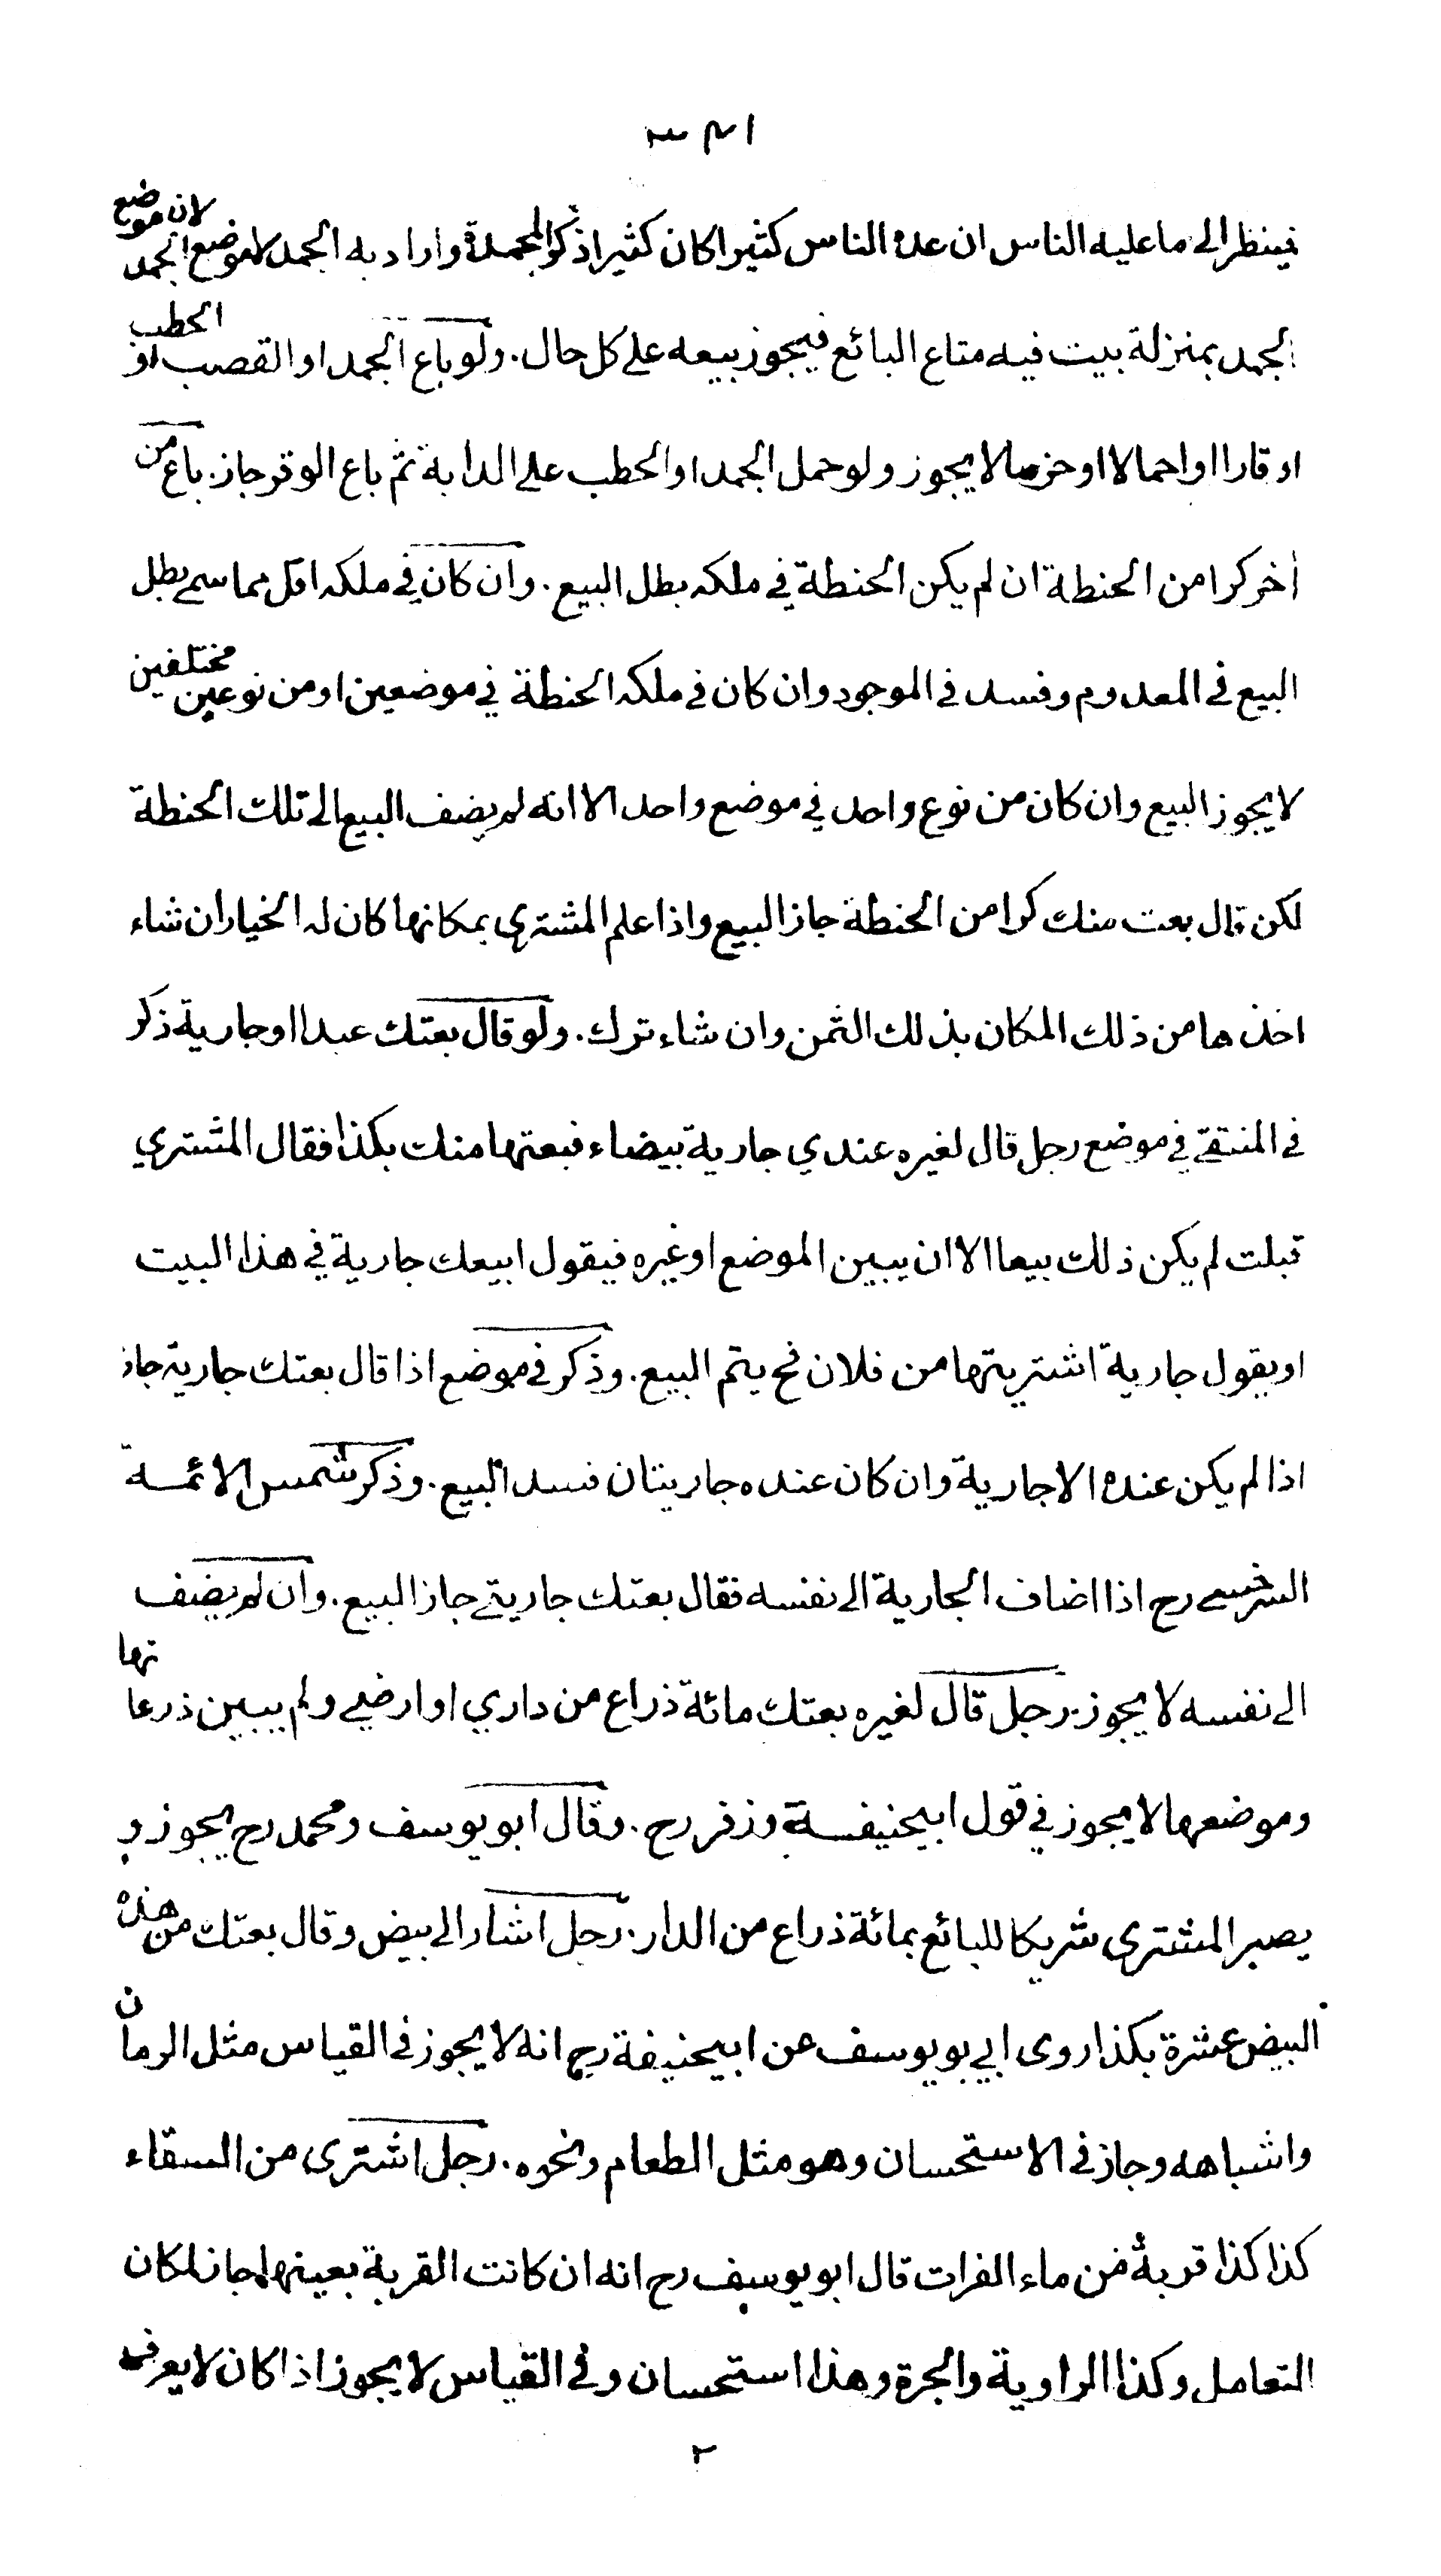 ٣٢١
فينظر الى ما عليه الناس ان عده الناس كثيرا كان كثيرا ذكر المجمدة واراد به الجمد لا موضع الجمد لان موضع
الجمد بمنزلة بيت فيه متاع البائع فيجوز بيعه على كل حال. ولو باع الجمد او القصب او الحطب
اوقارا او احمالا او حزما لا يجوز ولو حمل الجمد او الحطب على الدابة ثم باع الوقر جاز. باع من
أخر كرا من الحنطة ان لم يكن الحنطة في ملكه بطل البيع. وان كان في ملكه اقل مما سمى بطل
البيع في المعدوم وفسد في الموجود وان كان في ملكه الحنطة في موضعين او من نوعين مختلفين
لا يجوز البيع وان كان من نوع واحد في موضع واحد الا انه لم يضف البيع الى تلك الحنطة
لكن قال بعت منك كرا من الحنطة جاز البيع واذا علم المشترى بمكانها كان له الخيار ان شاء
اخذها من ذلك المكان بذلك الثمن وان شاء ترك. ولو قال بعتك عبدا او جارية ذكر
في المنتقى في موضع رجل قال لغيره عندي جارية بيضاء فبعتها منك بكذا فقال المشتري
قبلت لم يكن ذلك بيعا الا ان يبين الموضع او غيره فيقول ابيعك جارية في هذا البيت
او يقول جارية اشتريتها من فلان فح يتم البيع. وذكر في موضع اذا قال بعتك جارية جاز
اذا لم يكن عنده الا جارية وان كان عنده جاريتان فسد البيع. وذكر شمس الائمة
السرخسى رح اذا اضاف الجارية الى نفسه فقال بعتك جاريتى جاز البيع. وان لم يضف
الى نفسه لا يجوز. رجل قال لغيره بعتك مائة ذراع من داري او ارضى ولم يبين ذرعا تها
وموضعها لا يجوز في قول ابيحنيفة وزفر رح. وقال ابو يوسف ومحمد رح يجوز و
يصير المشترى شريكا للبائع بمائة ذراع من الدار. رجل اشار الى بيض وقال بعتك من هذه
البيض عشرة بكذا روى ابي بو يوسف عن ابيحنيفة رح انه لا يجوز في القياس مثل الرمان
واشباهه وجاز في الاستحسان وهو مثل الطعام ونحوه. رجل اشترى من السقاء
كذا كذا قربة من ماء الفرات قال ابو يوسف رح انه ان كانت القربة بعينها جاز لمكان
التعامل وكذا الراوية والجرة وهذا استحسان وفي القياس لا يجوز اذا كان لا يعرف
٢